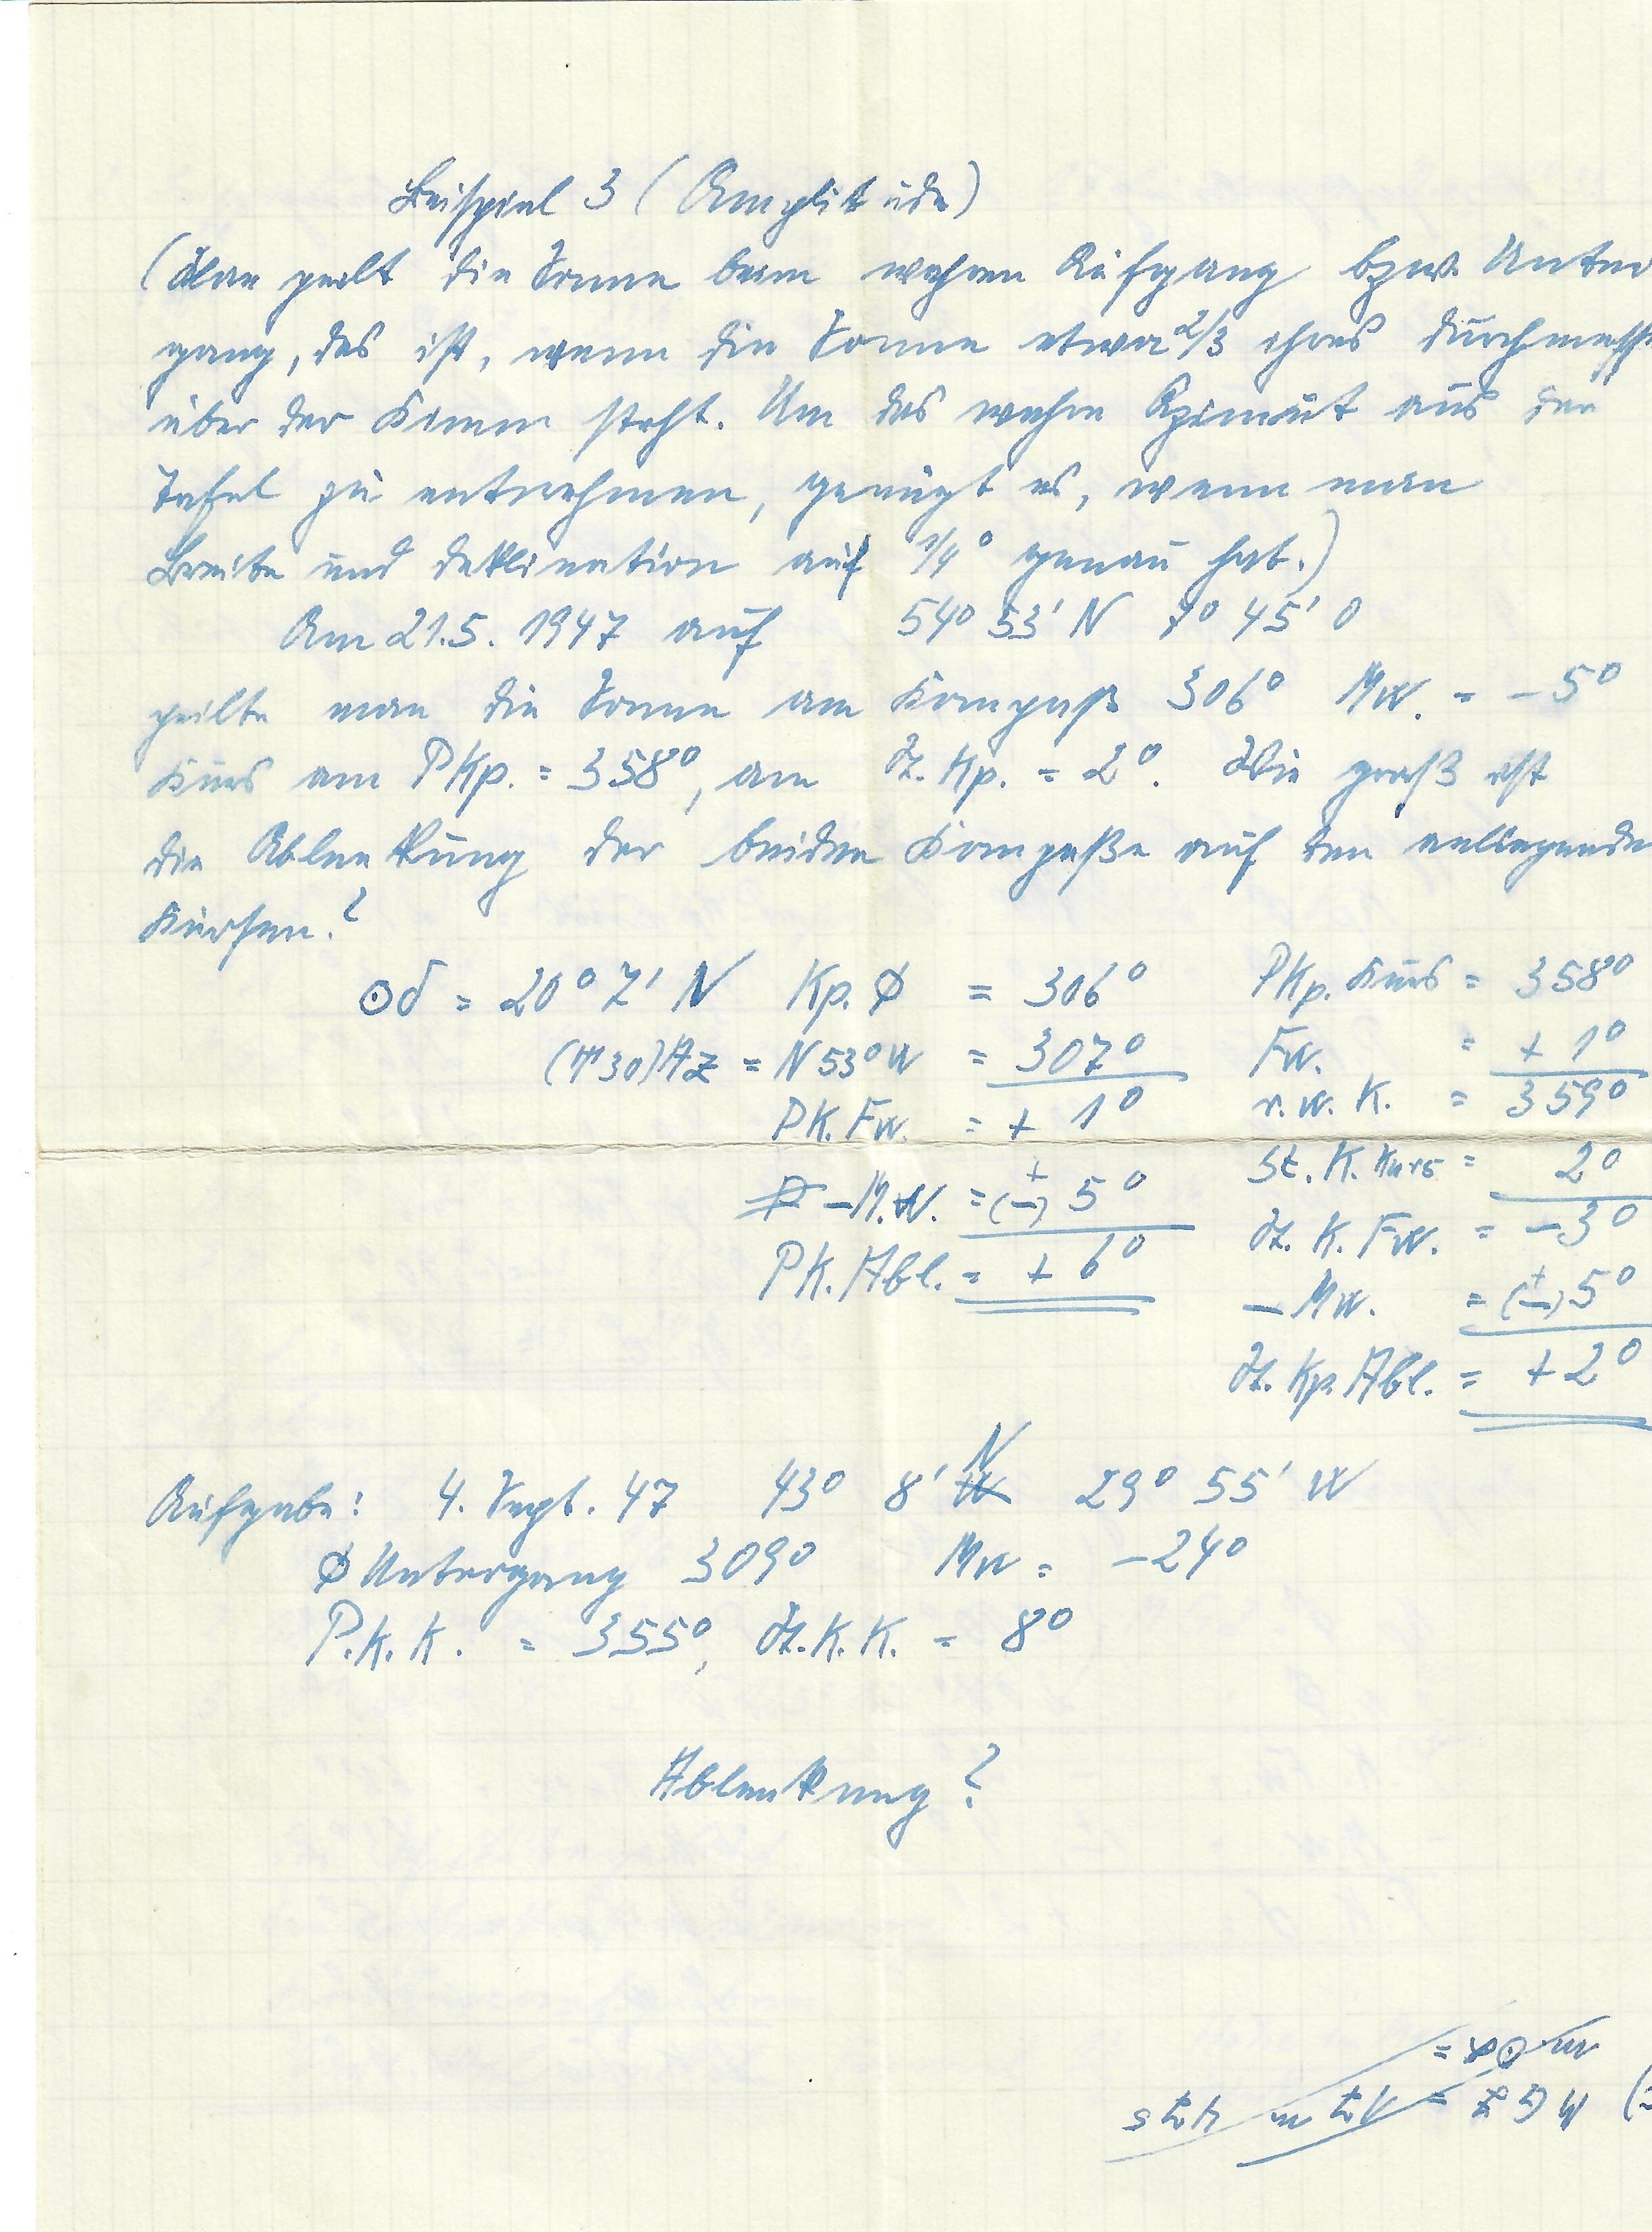 Beispiel 3 (Amplitude)
(Man peilt die Sonne beim wahren Aufgang bzw. Unter
gang, das ist, wenn die Sonne etwa 2/3 ihres Durchmesse
über der Kimm steht. Um das wahre Azimut aus der
Tafel zu entnehmen, genügt es, wenn man
Breite und Deklination auf 1/4° genau hat.)
Am 21.5. 1947 auf 54° 53' N 7° 45' O
peilte man die Sonne am Kompaß 306° Mw. = - 5°
Kurs am PKp. = 358°, am St. Kp. = 2°. Wie groß ist
die Ablenkung der beiden Kompaße auf den anliegende
Kursen?
☉δ = 20° 7' N Kp. ⌀ = 306° PKp. Kurs = 358°
(π 30) Az = N 53° W = 307° Fw. = + 1°
PK. Fw. = + 1° r. w. K. = 359°
- M.W. = (-)+ 5° St. K. Kurs = 2°
PK. Abl. = + 6° St. K. Fw. = - 3°
- Mw. = (-)+ 5°
St. Kp. Abl. = + 2°
Aufgabe: 4. Sept. 47 43° 8' N 29° 55' W
⌀ Untergang 309° Mw = - 24°
P.K.K. = 355°, St.K.K. = 8°
Ablenkung?